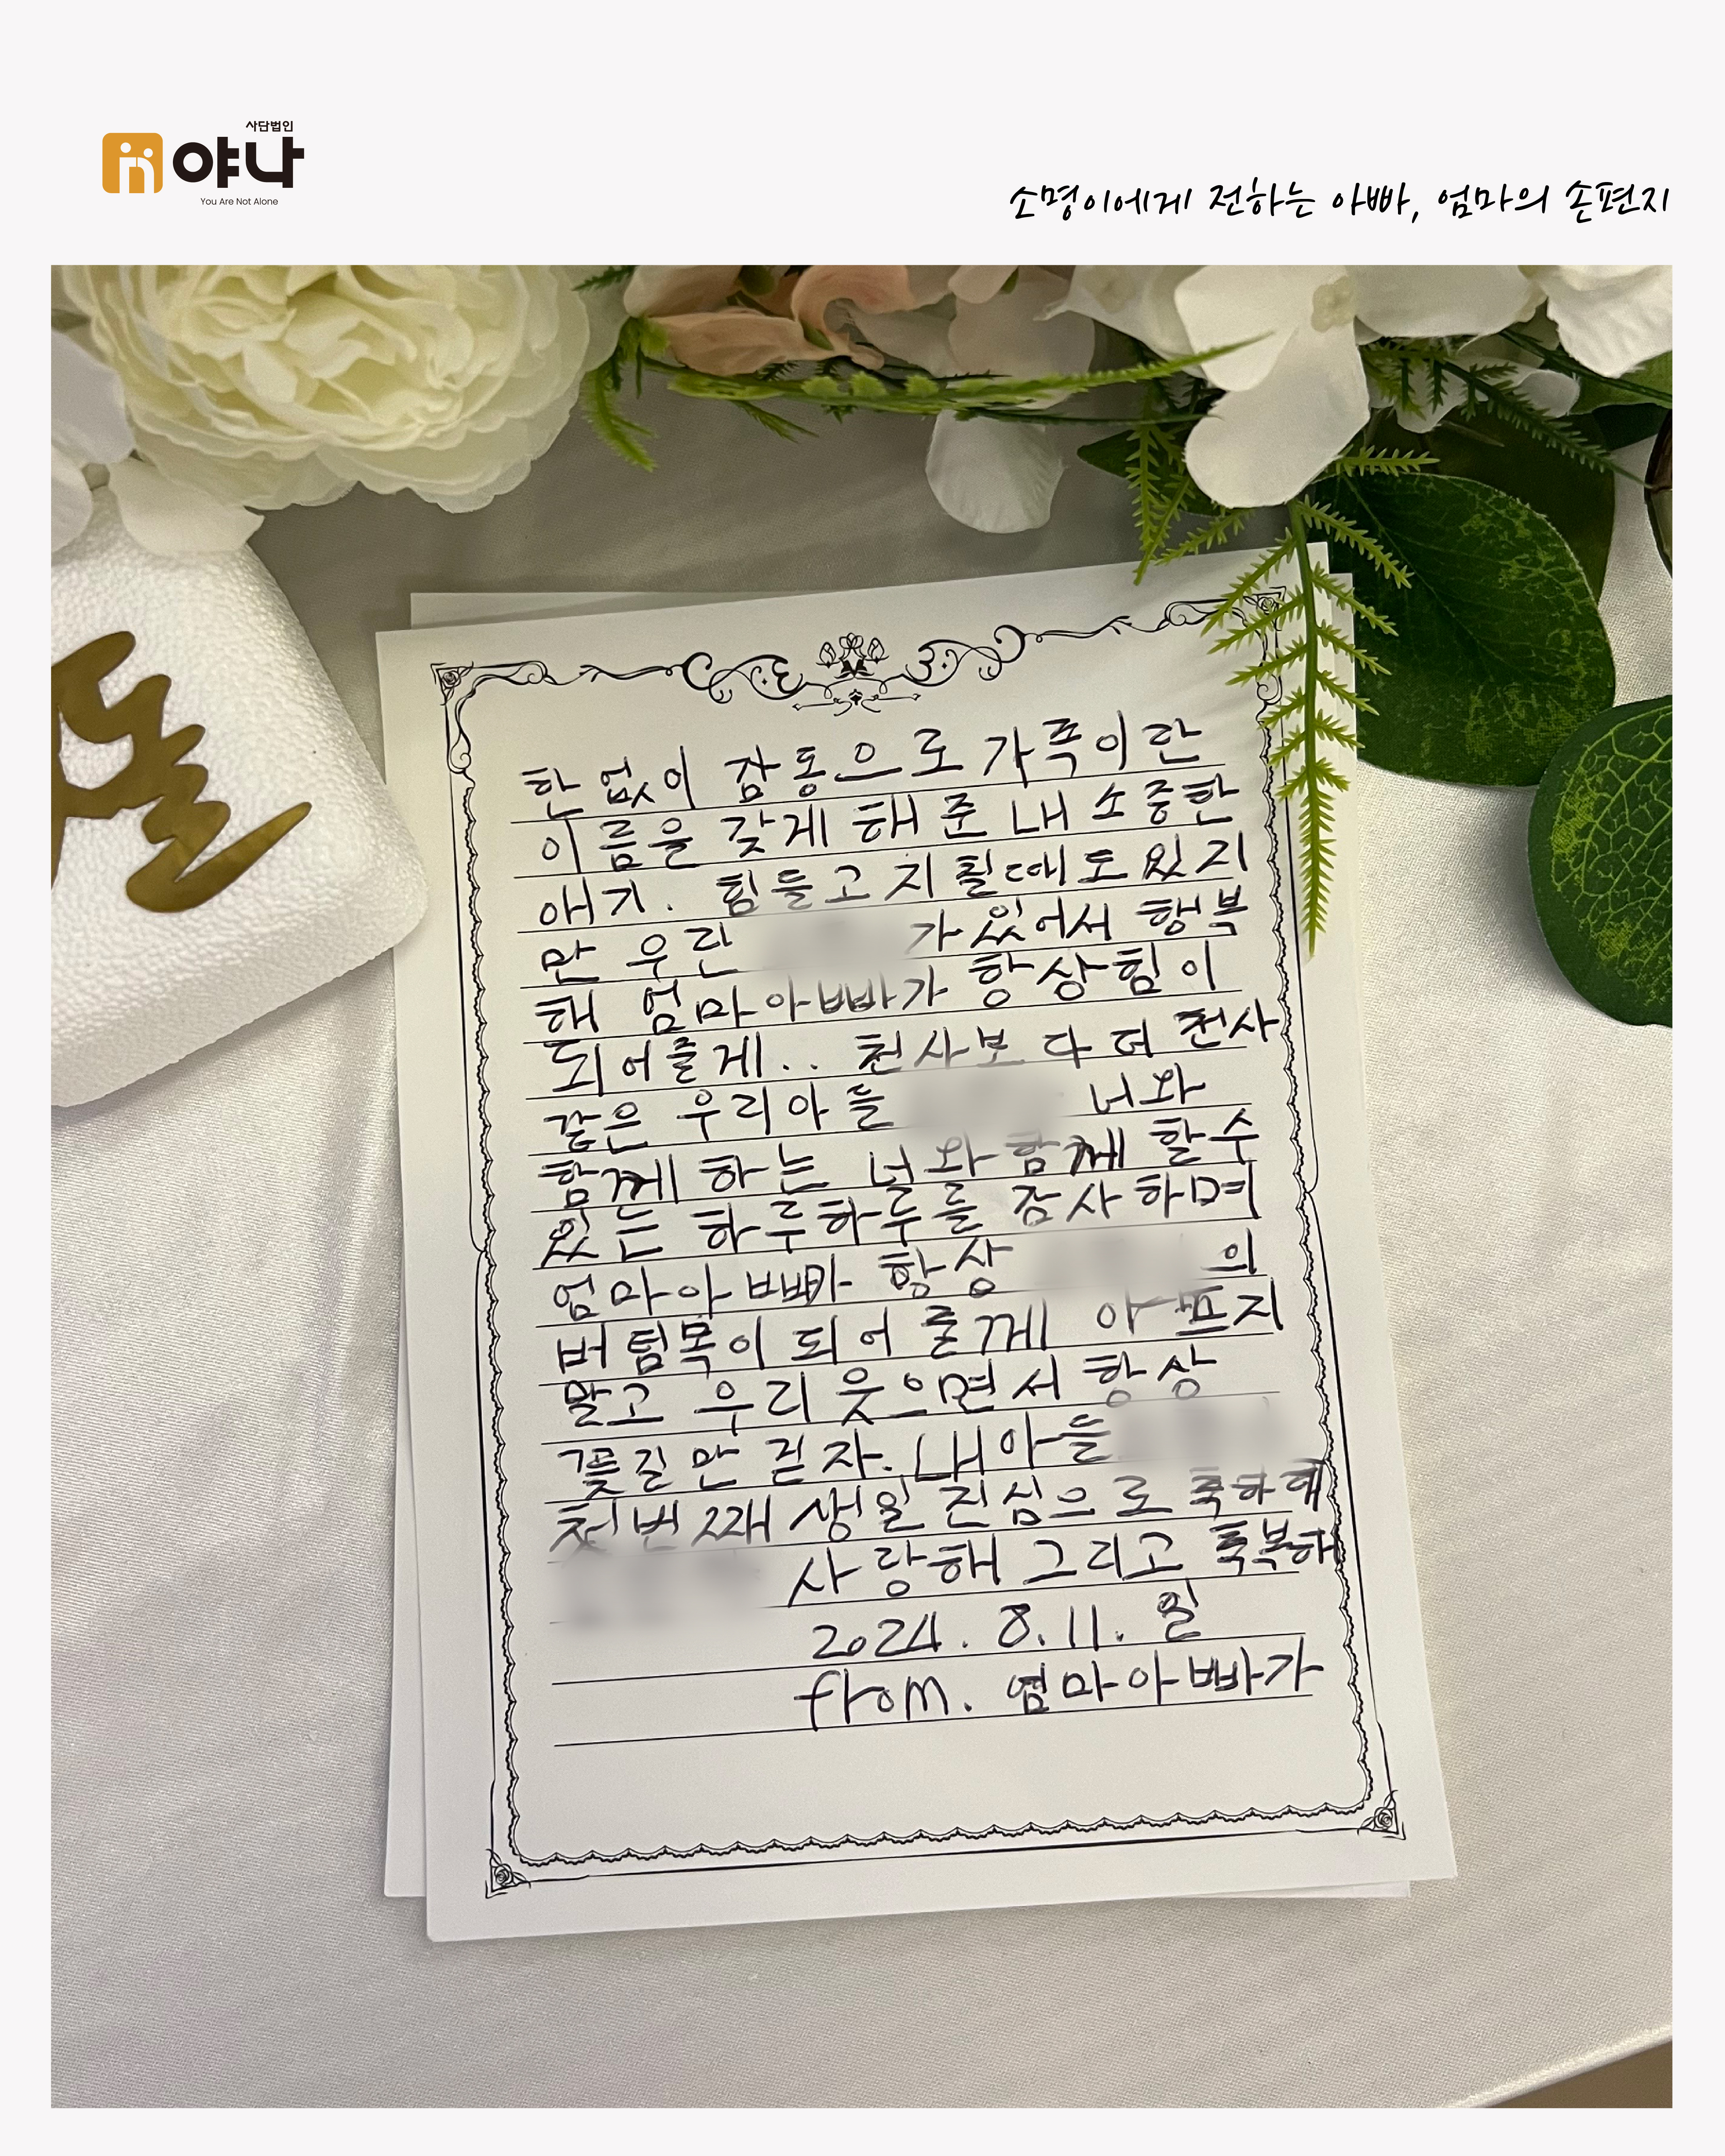 사단법인
야나
You Are Not Alone
소명이에게 전하는 아빠, 엄마의 손편지
돌
한 없이 감동으로 가족이란
이름을 갖게 해준 내 소중한
애기. 힘들고 지칠때도 있지
만 우린 가 있어서 행복
해 엄마아빠가 항상 힘이
되어줄게.. 천사보다 더 천사
같은 우리아들 너와
함께 하는 널 와 함께 할수
있는 하루하루를 감사하며
엄마아빠가 항상 의
버팀목이 되어 줄께 아프지
말고 우리 웃으면서 항상
꽃길만 걷자. 내아들
첫번째 생일 진심으로 축하해
사랑해 그리고 축복해
2024. 8. 11. 일
from. 엄마아빠가